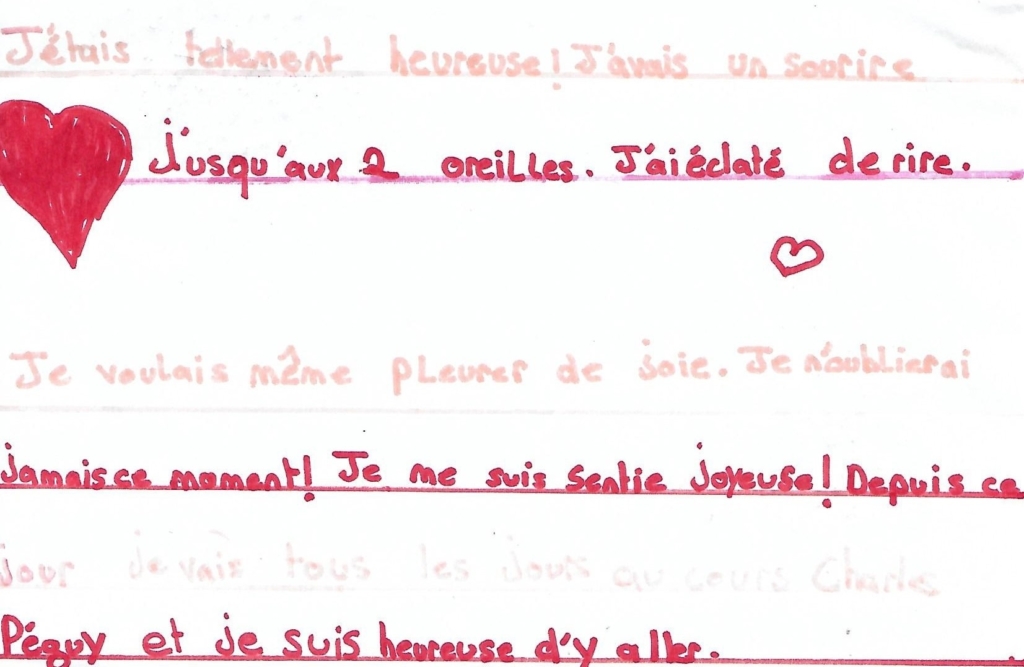 J'étais tellement heureuse! J'avais un sourire
j'usqu'aux 2 oreilles. J'ai éclaté de rire.
Je voulais même pleurer de joie. Je n'oublierai
jamais ce moment! Je me suis sentie joyeuse! Depuis ce
jour je vais tous les jours au cours Charles
Péguy et je suis heureuse d'y aller.